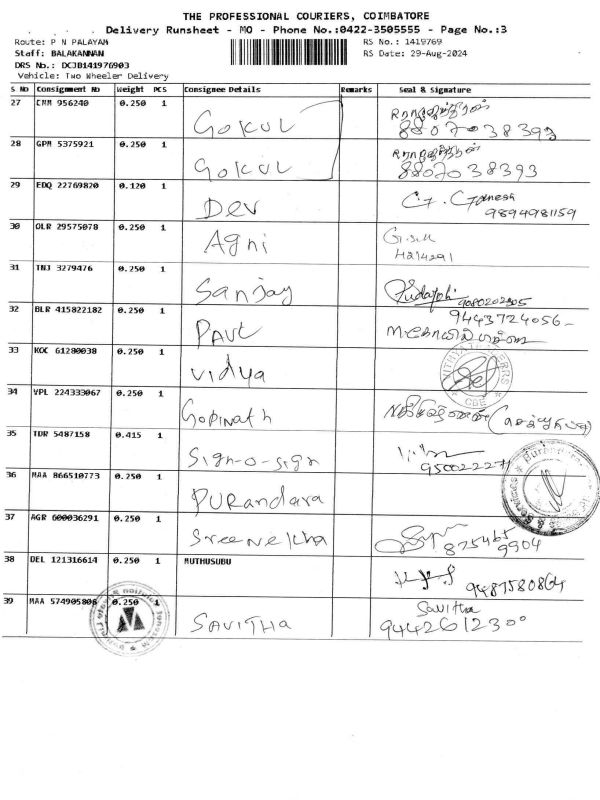 THE PROFESSIONAL COURIERS, COIMBATORE
Delivery Runsheet - MO - Phone No.:0422-3505555 - Page No.:3
Route: P N PALAYAM
RS No.: 1419769
Staff: BALAKANNAN
RS Date: 29-Aug-2024
DRS No.: DCJB141976903
Vehicle: Two Wheeler Delivery
S No Consignment No Weight PCS Consignee Details Remarks Seal & Signature
27 CMM 956240 0.250 1 Gokul
8807038393
28 GPM 5375921 0.250 1 Gokul
8807038393
29 EDQ 22769820 0.120 1 Dev
9894981159
30 OLR 29575078 0.250 1 Agni
31 TNJ 3279476 0.250 1 Sanjay
9080202305
32 BLR 415822182 0.250 1 Pavt 9443724056
33 KOC 61280038 0.250 1 vidya
34 VPL 224333067 0.250 1 Gopinath
35 TDR 5487158 0.415 1 Sign-o-sign
36 MAA 866510773 0.250 1 Purandara
37 AGR 600036291 0.250 1 Sreenekha
875465
9904
38 DEL 121316614 0.250 1 MUTHUSUBU
9487580864
39 MAA 574905806 0.250 1 SAVITHA
Savitha
9442612300